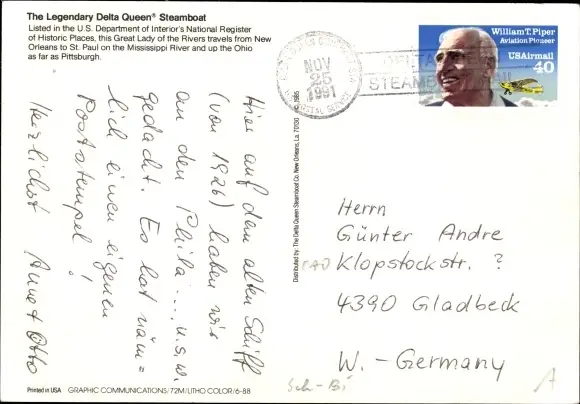 The Legendary Delta Queen® Steamboat
Listed in the U.S. Department of Interior's National Register
of Historic Places, this Great Lady of the Rivers travels from New
Orleans to St. Paul on the Mississippi River and up the Ohio
as far as Pittsburgh.
NOV
25
1991
POSTAL SERVICE
DELTA
STEAMBOAT
William T. Piper
Aviation Pioneer
USAirmail
40
Hier auf dem alten Schiff
(von 1926) haben wir
an den Phila..., u.s.w.
gedacht. Es hat näm=
lich einen eigenen
Poststempel!
Herzlichst Anne + Otto
Distributed by: The Delta Queen Steamboat Co. New Orleans, La. 70130 © 1985
Herrn
Günter Andre
Klopstockstr. ?
4390 Gladbeck
W. - Germany
Sch-Bi
A
Printed in USA GRAPHIC COMMUNICATIONS/72M/LITHO COLOR/6-88